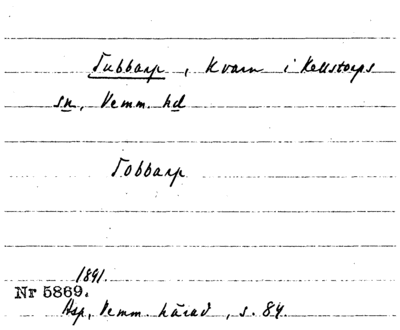 Tubbarp, Kvarn i Källstorps
sn, Vemm. hd
Tobbarp
1891.
Nr 5869.
Asp, Vemm. härad, s. 84.